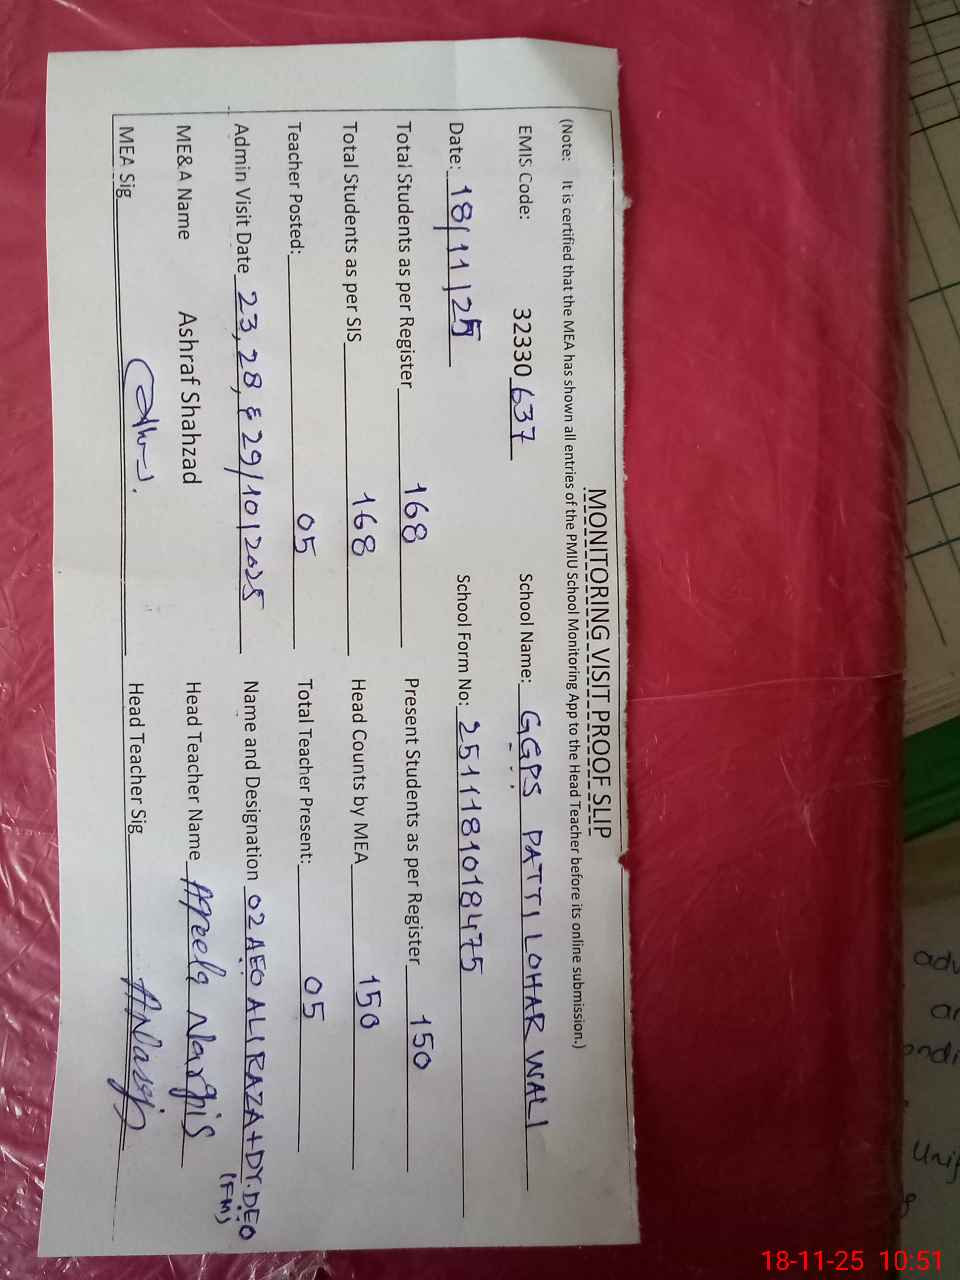 MONITORING VISIT PROOF SLIP
(Note: It is certified that the MEA has shown all entries of the PMIU School Monitoring App to the Head Teacher before its online submission.)
EMIS Code: 32330637 School Name: GGPS PATTI LOHAR WALI
Date: 18/11/25 School Form No: 2511181018475
Total Students as per Register 168 Present Students as per Register 150
Total Students as per SIS 168 Head Counts by MEA 150
Teacher Posted: 05 Total Teacher Present: 05
Admin Visit Date 23, 28, & 29/10/2025 Name and Designation 02 AEO ALI RAZA + DY.DEO
(FM)
ME&A Name Ashraf Shahzad Head Teacher Name Aqeela Nargis
MEA Sig Head Teacher Sig
adv
Unif
18-11-25 10:51